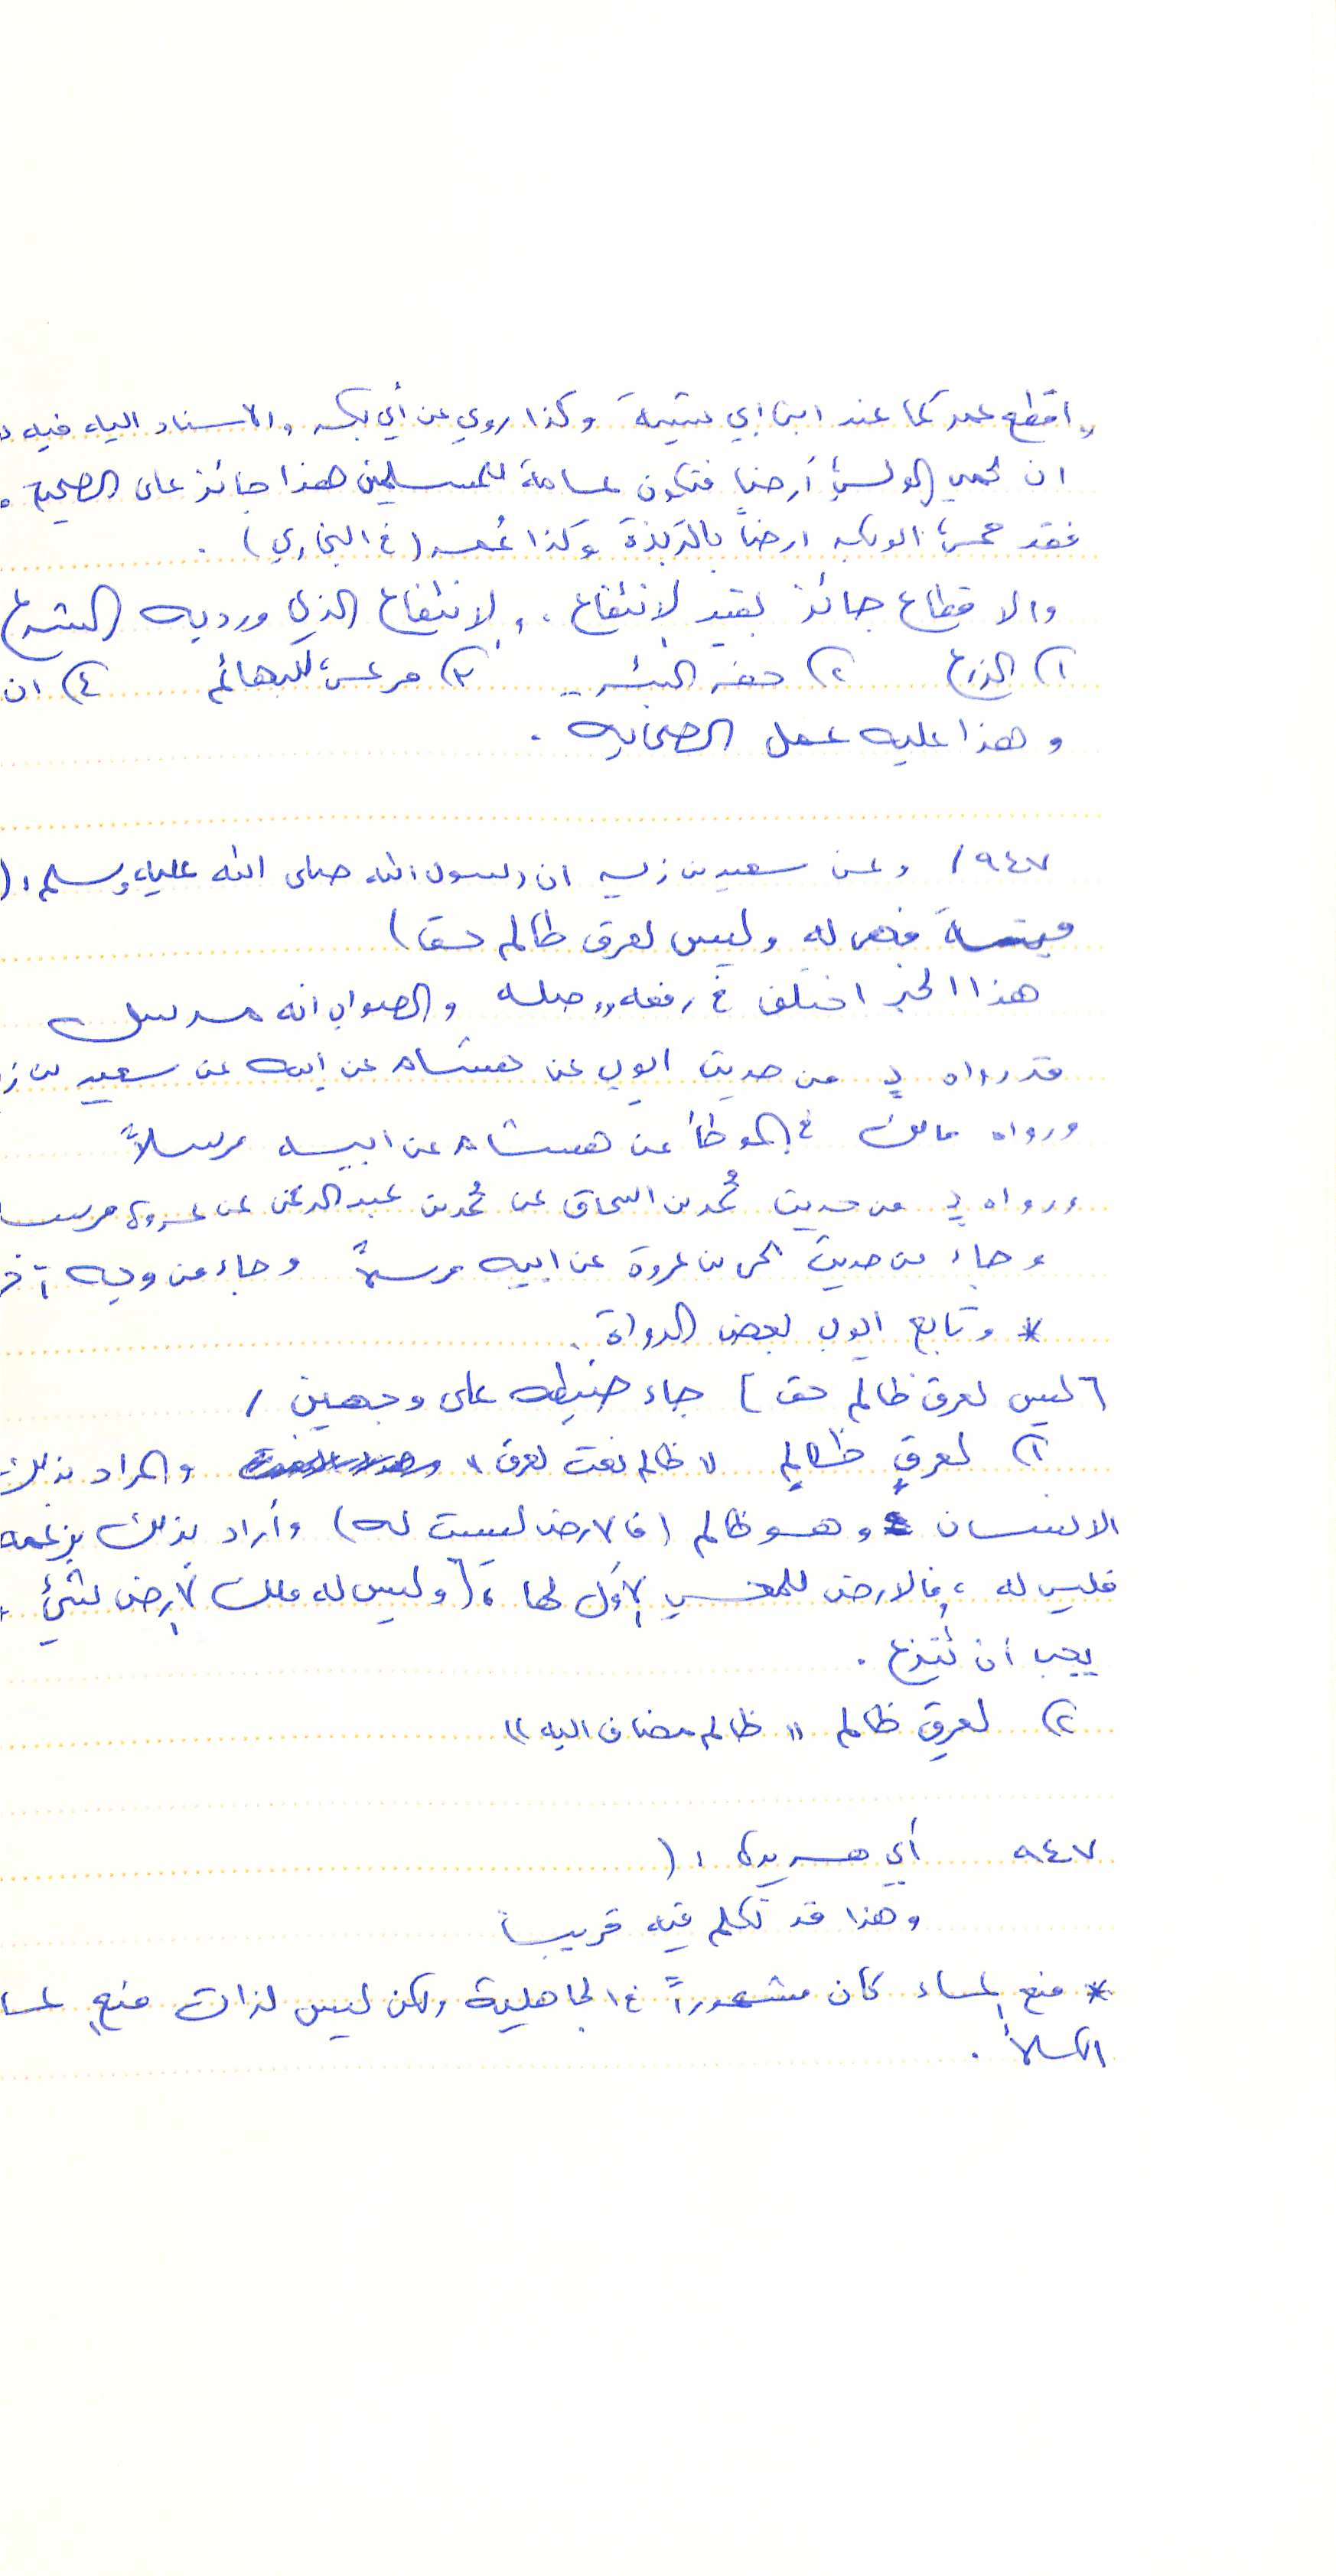 واقطع عمر كما عند ابن ابي شيبة وكذا روي عن أبي بكر والاسناد اليه فيه
ان يحمي الوالي أرضاً فتكون عامة للمسلمين هذا جائز على الصحيح
فقد حمى ابوبكر ارضاً بالربذة وكذا عُمر (في البخاري) .
والاقطاع جائز بقيد الانتفاع ، والانتفاع الذي ورد به الشرع
١) الزرع ٢) حفر البئر ٣) مرعى للبهائم ٤) ان
وهذا عليه عمل الصحابه .
٩٤٧/ وعن سعيد بن زيد ان رسول الله صلى الله عليه وسلم : (
ميتة فهي له وليس لعرق ظالم حق)
هذا الخبر اختلف في رفعه ووصله والصواب انه مرسل
قد رواه د من حديث ايوب عن هشام عن ابيه عن سعيد بن ز
ورواه مالك في الموطأ عن هشام عن ابيه مرسلاً
ورواه د من حديث محمد بن اسحاق عن عروة مرسلا
وجاء من حديث يحيى بن عروة عن ابيه مرسلاً وجاء من وجه آخر
* وتابع ايوب بعض الرواة .
[ ليس لعرق ظالم حق ] جاء ضبطه على وجهين /
١) لعرقٍ ظالمٍ " ظالم نعت لعرق " والمراد بذلك
الانسان وهو ظالم (فالارض ليست له) وأراد بذلك بزعمه
فليس له ، فالارض للمحيي الأول لها ، [وليس له ملك الأرض لشيء
يجب ان تُنزع .
٢) لعرقِ ظالم " ظالم مضاف اليه "
٩٤٧ أبي هريرة : (
وهذا قد تكلم فيه قريباً
* منع الماء كان مشهوراً في الجاهلية ولكن ليس لذات منع الما
الكلأ .